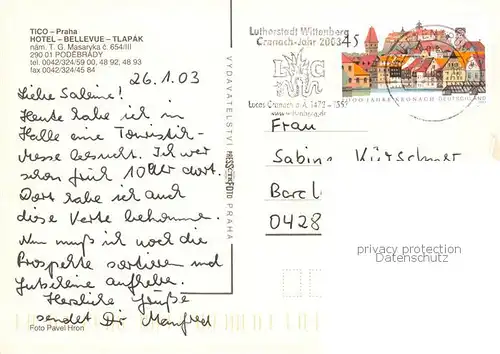 TICO – Praha
HOTEL – BELLEVUE – TLAPÁK
nám. T. G. Masaryka č. 654/III
290 01 PODĚBRADY
tel. 0042/324/59 00, 48 92, 48 93
fax 0042/324/45 84
26.1.03
Liebe Sabine!
Heute habe ich in
Halle eine Touristik-
Messe besucht. Ich war
schon früh 10 Uhr dort.
Dort habe ich auch
diese Karte bekommen.
Nun muß ich noch die
Prospekte sortieren und
aufheben.
Herzliche Grüße
sendet Dir Manfred
Foto Pavel Hron
VYDAVATELSTVÍ
PRAHA
Lutherstadt Wittenberg
Cranach-Jahr 2003
L C
Lucas Cranach d.Ä. 1472 - 1553
www.wittenberg.de
45
1000 JAHRE KRONACH DEUTSCHLAND
Frau
Sabine Kürschner
Barcl
0428
privacy protection
Datenschutz